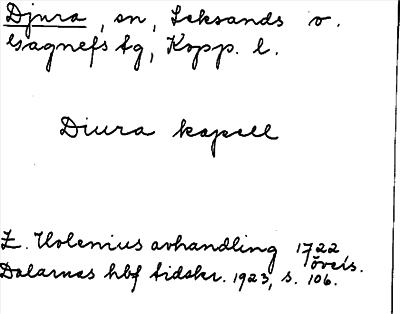 Djura, sn, Leksands o.
Gagnefs tg, Kopp. l.
Diura kapell
E. Holenius avhandling 1722
övers.
Dalarnas hbf tidskr. 1923, s. 106.